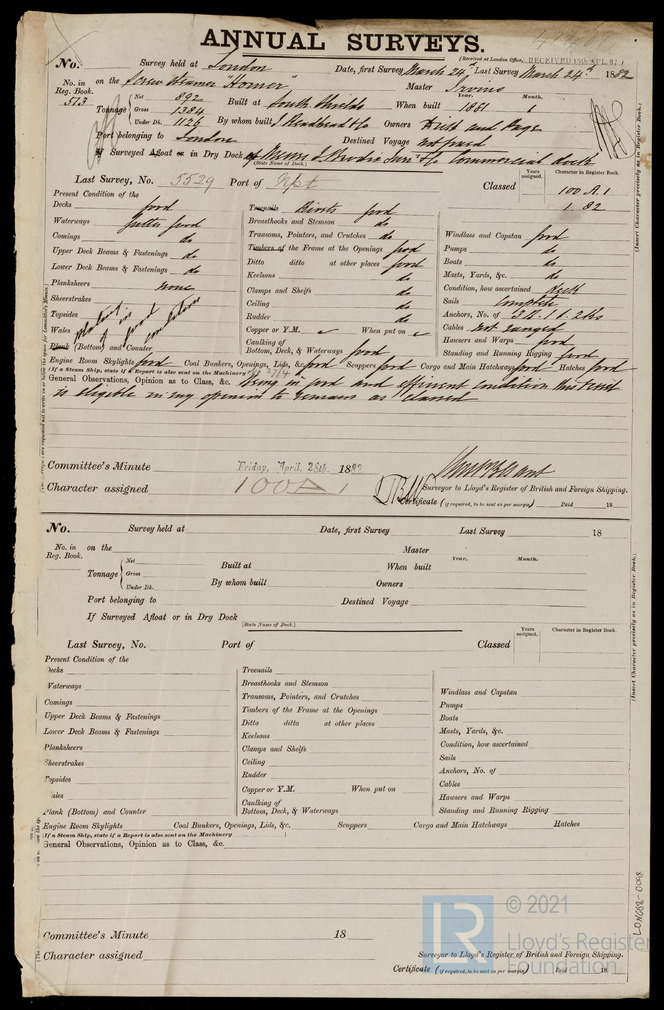 ANNUAL SURVEYS.
(Received at London Office, RECEIVED 15th APL. 87)
No. Survey held at London Date, first Survey March 24th Last Survey March 24th 1882
No. in Reg. Book. 513 on the Screw Steamer "Homer" Master Irvine
Tonnage Net 892 Gross 1384 Under Dk. 1126 Built at South Shields When built Year. 1881 Month. 1
By whom built J Readhead & Co Owners
Port belonging to London Destined Voyage not fixed
If Surveyed Afloat or in Dry Dock Commercial Dock
(State Name of Dock.)
Last Survey, No. 5529 Port of Classed Years assigned. Character in Register Book. 100 A.1
1.82
Present Condition of the
Decks good
Waterways Gutter good
Comings do
Upper Deck Beams & Fastenings do
Lower Deck Beams & Fastenings do
Planksheers none
Sheerstrakes
Topsides
Wales
Plank (Bottom) and Counter
plating in good condition
Treenails Rivets good
Breasthooks and Stemson do
Transoms, Pointers, and Crutches do
Timbers of the Frame at the Openings good
Ditto ditto at other places good
Keelsons do
Clamps and Shelfs do
Ceiling do
Rudder do
Copper or Y.M. When put on
Caulking of Bottom, Deck, & Waterways good
Windlass and Capstan good
Pumps do
Boats do
Masts, Yards, &c. do
Condition, how ascertained deck
Sails complete
Anchors, No. of
Cables not ranged
Hawsers and Warps good
Standing and Running Rigging good
Engine Room Skylights good Coal Bunkers, Openings, Lids, &c. good Scuppers good Cargo and Main Hatchways good Hatches good
(If a Steam Ship, state if a Report is also sent on the Machinery
General Observations, Opinion as to Class, &c. being in good and efficient condition this vessel
is eligible in my opinion to remain as classed
Committee's Minute Friday, April, 28th. 1882
Character assigned 100A1
Surveyor to Lloyd's Register of British and Foreign Shipping.
Certificate (if required, to be sent as per margin) Paid 18
No. Survey held at Date, first Survey Last Survey 18
No. in Reg. Book. on the Master
Tonnage Net Gross Under Dk. Built at When built Year. Month.
By whom built Owners
Port belonging to Destined Voyage
If Surveyed Afloat or in Dry Dock
(State Name of Dock.)
Last Survey, No. Port of Classed Years assigned. Character in Register Book.
Present Condition of the
Decks
Waterways
Comings
Upper Deck Beams & Fastenings
Lower Deck Beams & Fastenings
Planksheers
Sheerstrakes
Topsides
Wales
Plank (Bottom) and Counter
Treenails
Breasthooks and Stemson
Transoms, Pointers, and Crutches
Timbers of the Frame at the Openings
Ditto ditto at other places
Keelsons
Clamps and Shelfs
Ceiling
Rudder
Copper or Y.M. When put on
Caulking of Bottom, Deck, & Waterways
Windlass and Capstan
Pumps
Boats
Masts, Yards, &c.
Condition, how ascertained
Sails
Anchors, No. of
Cables
Hawsers and Warps
Standing and Running Rigging
Engine Room Skylights Coal Bunkers, Openings, Lids, &c. Scuppers Cargo and Main Hatchways Hatches
(If a Steam Ship, state if a Report is also sent on the Machinery )
General Observations, Opinion as to Class, &c.
Committee's Minute 18
Character assigned
Surveyor to Lloyd's Register of British and Foreign Shipping.
Certificate (if required, to be sent as per margin) Paid 18
(Insert Character precisely as in Register Book.)
(Insert Character precisely as in Register Book.)
LON688-0098
LR
© 2021
Lloyd's Register
Foundation